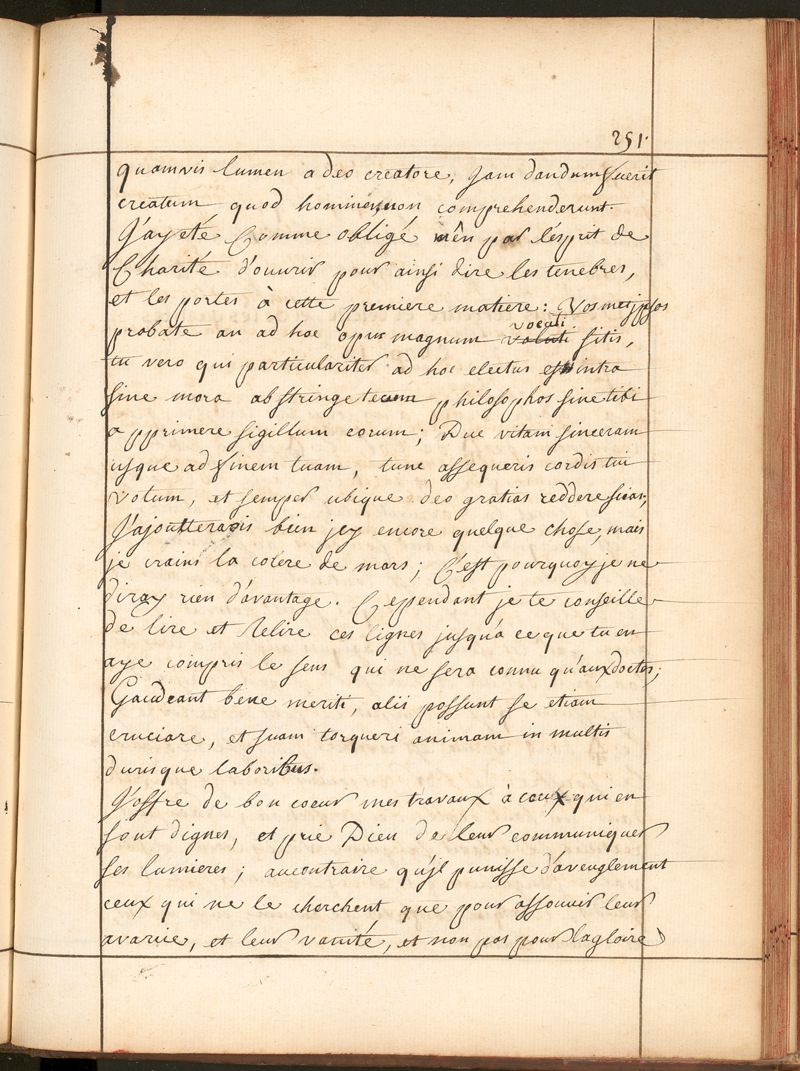 251.
quamvis lumen a deo creatore, jam dandum fuerit
creatum quod homines non comprehenderunt.
J'ay eté Comme obligé mên par l'ésprit de
Charité d'ouvrir pour ainsi dire les tenebres,
et les portes à cette premiere matiere: Vos metjpsos
vocati
probate an ad hoc opus magnum voluti sitis,
tu vero qui particulariter ad hoc electus es intra
sine mora abstringe tecum philosophos sine tibi
apprimere sigillum eorum; Duc vitam sinceram
usque ad finem tuam, tunc assequeris cordis tui
votum, et semper ubique deo gratias reddere scias,
J'ajoutterais bien jcy encore quelque chose, mais
je crains la colere de mars; C'est pourquoy je ne
diray rien d'avantage. Cependant je te conseille
de lire et Relire ces lignes jusqu'a ce que tu en
aye compris le sens qui ne sera connu qu'aux doctes;
Gaudeant bene meriti, alii possunt se etiam
cruciare, et suam torqueri animam in multis
durisque laboribus.
J'offre de bon coeur mes travaux à ceux qui en
sont dignes, et prie Dieu de leur communiquer
ses lumieres; aucontraire qu'jl punisse d'aveuglement
ceux qui ne le cherchent que pour assouvir leur
avarice, et leur vanité, et non pas pour la gloire